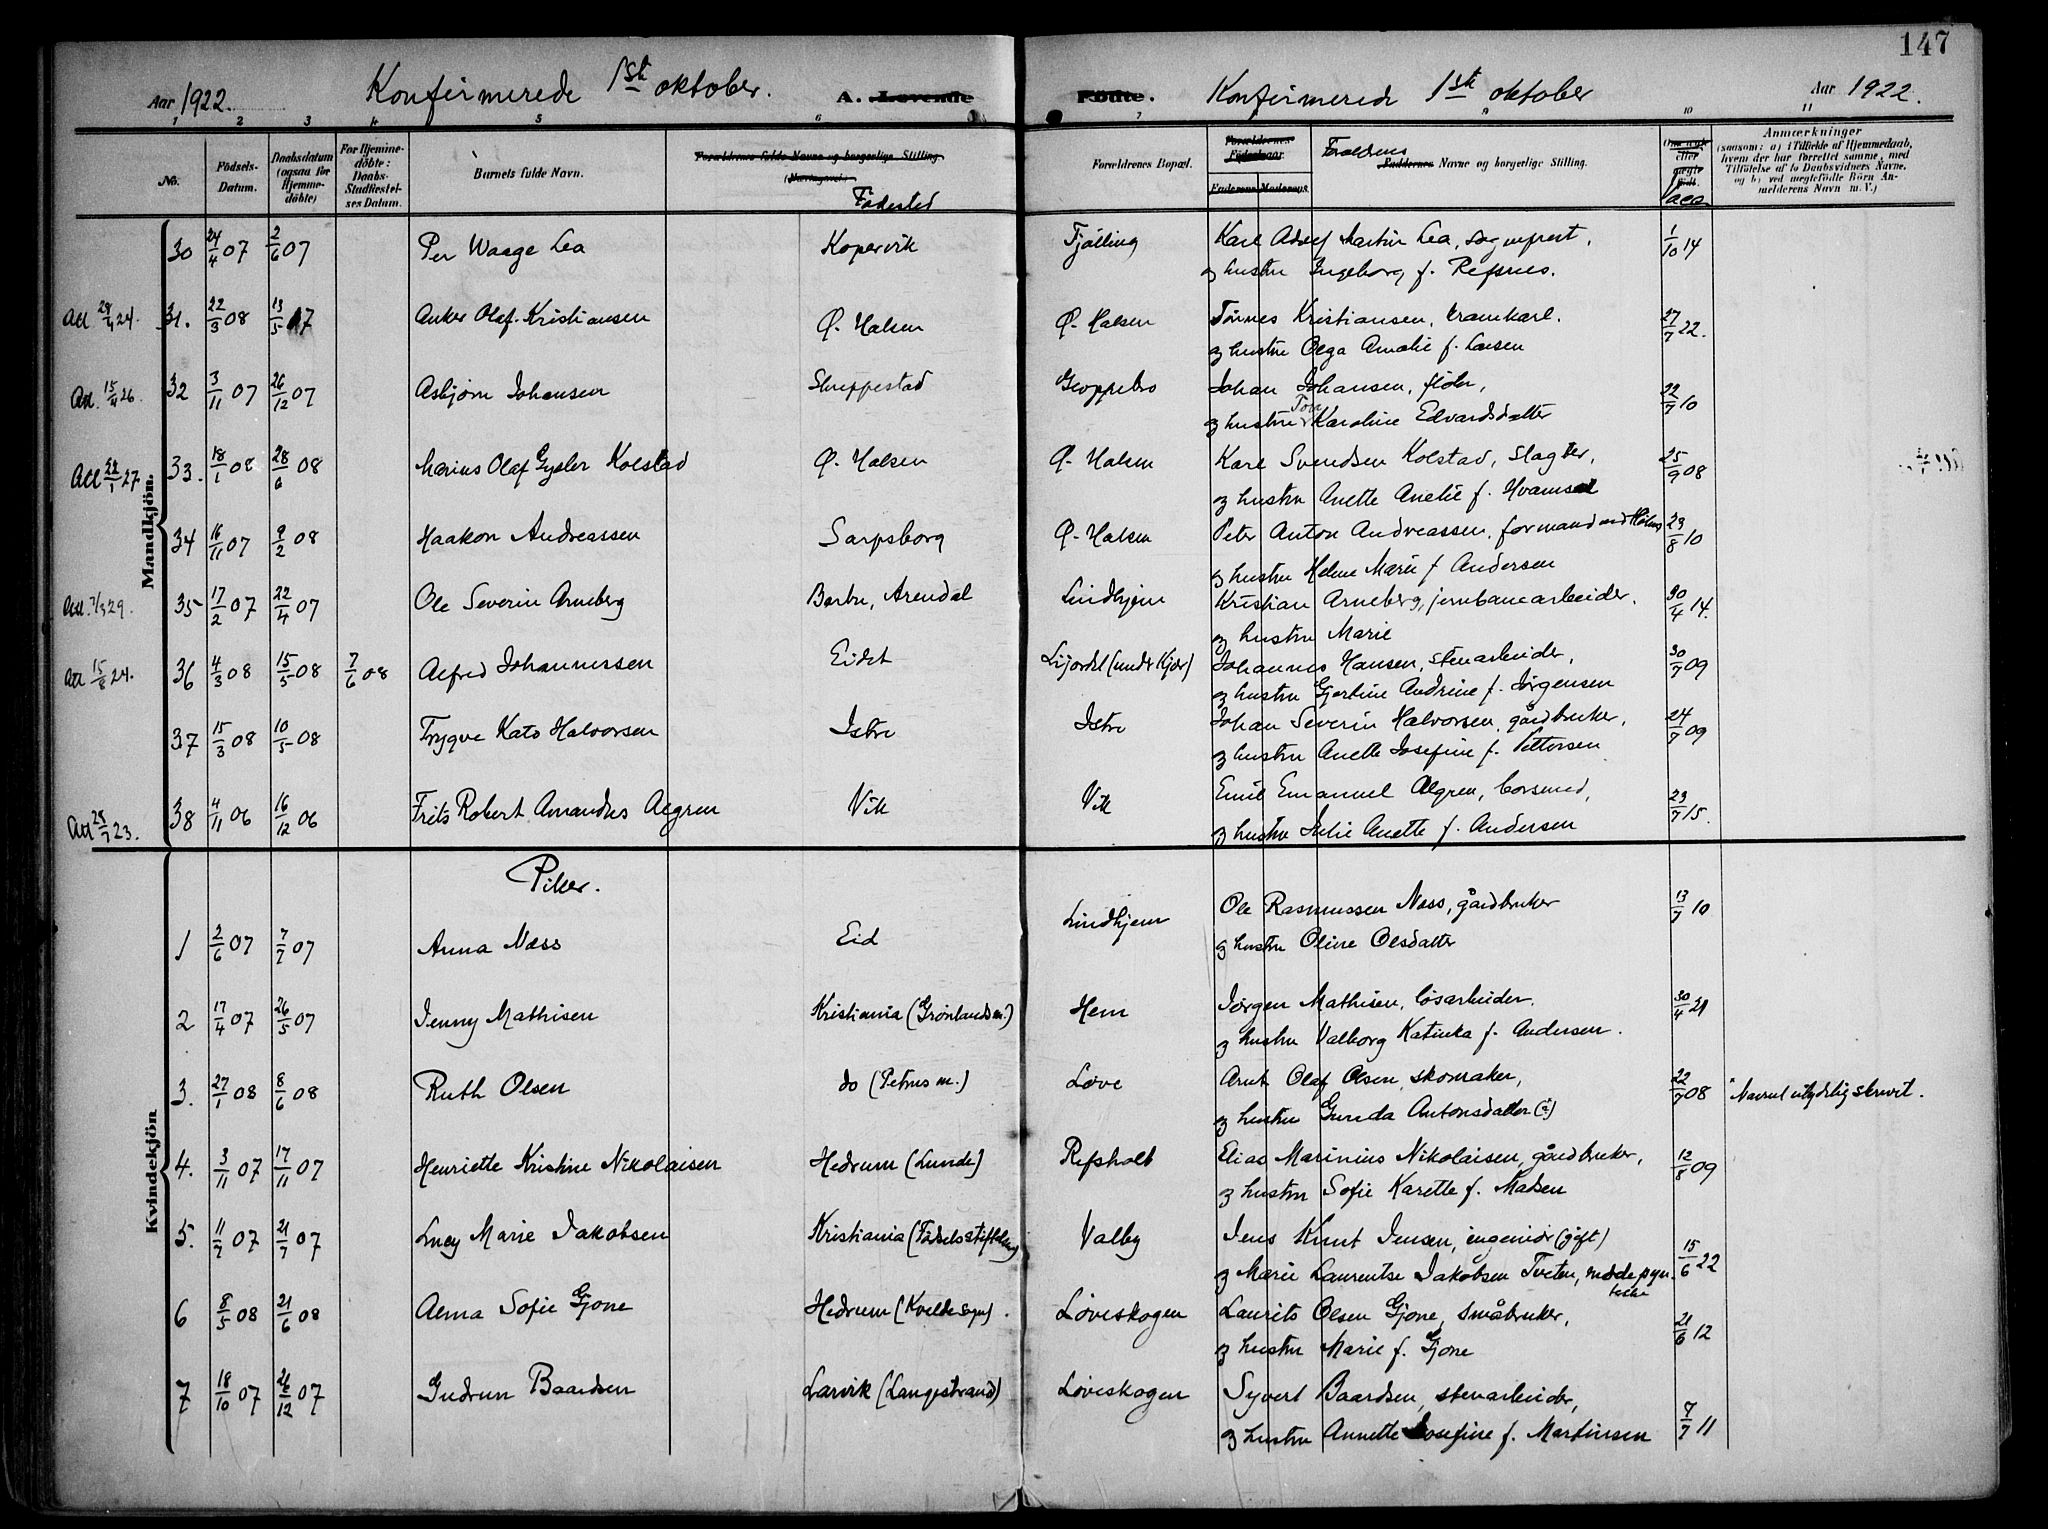 147
Aar 1922. Konfirmerede 1ste oktober. A. Levende Födte. Konfirmerede 1ste oktober Aar 1922.
1 2 3 4 5 6 7 9 10 11
No. Födsels-Datum. Daabsdatum (ogsaa for Hjemmedöbte) For Hjemmedöbte: Daabs-Stadfæstelses Datum. Barnets fulde Navn. Forældrenes fulde Navne og borgerlige Stilling. Födested Forældrenes Bopæl. Forældrenes Födselsaar Faderens Moderens Foreldrens Faddernes Navne og borgerlige Stilling. Vacc Anmærkninger (saasom: a) i Tilfælde af Hjemmedaab, hvem der har forrettet samme, med Tilföielse af to Daabsvidners Navne. og b) ved uægtefödte Börn Anmelderens Navn m. V.)
Mandkjön.
30 24/4 07 2/6 07 Per Waage Lea Kopervik Tjölling Karl Adolf Martin Lea, sogneprest,
og hustru Ingeborg f. Refsnes. 1/10 14
Att 24. 31. 22/3 08 13/5 Anker Olaf Kristiansen Ø. Halsen Ø. Halsen Tönnes Kristiansen, 27/7 22.
og hustru Olga Amalie f. Larsen
Att. 15/4 26. 32 3/11 07 26/12 07 Asbjörn Johansen Skreppestad Gloppebro Johan Johansen, 22/7 10
og hustru Karoline Edvardsdatter
Att 27. 33. 18/1 08 28/6 08 Marius Olaf Gysler Kolstad Ø. Halsen Ø. Halsen Karl Svendsen Kolstad, slagter, 25/9 08
og hustru Anette Amelie f. Hvamsal
34 16/11 07 9/2 08 Haakon Andreassen Sarpsborg Ø. Halsen Peter Anton Andreassen, formand 23/8 10
og hustru Helene Marie f Andersen
Att. 29. 35 17/2 07 22/4 07 Ole Severin Arneberg Barbu, Arendal Lindhjem Kristian Arneberg, jernbanearbeider. 30/4 14.
og hustru Marie
Att 15/8 24. 36 4/3 08 15/5 08 7/6 08 Alfred Johannessen Eidet Lijordet (under Kjær) Johannes Hansen, stenarbeider, 30/7 09
og hustru Gjertine Andrine f. Jörgensen
37 15/3 08 10/5 08 Trygve Kato Halvorsen Istre Istre Johan Severin Halvorsen, gårdbruker, 24/7 09
og hustru Anette Josefine f. Pettersen
Att 28/7 23. 38 4/11 06 16/12 06 Frits Robert Amandus Algren Vik Vik Emil Emanuel Algren, 23/7 15.
og hustru Julie Anette f. Andersen
Kvindekjön
Piker.
1 2/6 07 7/7 07 Anna Næss Eid Lindhjem Ole Rasmussen Næss, gårdbruker 13/7 10
og hustru Oline Olsdatter
2 17/4 07 26/5 07 Jenny Mathisen Kristiania (Grönlands m.) Hem Jörgen Mathisen, lösarbeider. 30/4 21
og hustru Valborg Katinka f. Andersen.
3. 27/1 08 8/6 08 Ruth Olsen do (Petrus m.) Löve Arnt Olaf Olsen, skomaker, 22/7 08 Navnet utydelig skrevet.
og hustru Gunda Antonsdatter (?)
4. 3/11 07 17/11 07 Henriette Kristine Nikolaisen Hedrum (Lunde) Refsholt Elias Marinius Nikolaisen, gårdbruker, 12/8 09
og hustru Sofie Karette f. Madsen
5. 11/7 07 21/7 07 Lucy Marie Jakobsen Kristiania (Födselsstiftelsen) Valby Jens Knut Jensen, ingeniör (gift)
og Marie Laurentse Jakobsen Tveten, 15/6 22
6 8/5 08 21/6 08 Alma Sofie Gjone Hedrum (Kvelde sogn). Löveskogen Laurits Olsen Gjone, småbruker, 21/6 12
og hustru Marie f. Gjone
7 18/10 07 26/12 07 Gudrun Baardsen Larvik (Langestrand) Löveskogen Syvert Baardsen, stenarbeider,
og hustru Annette Josefine f. Martinsen 7/7 11